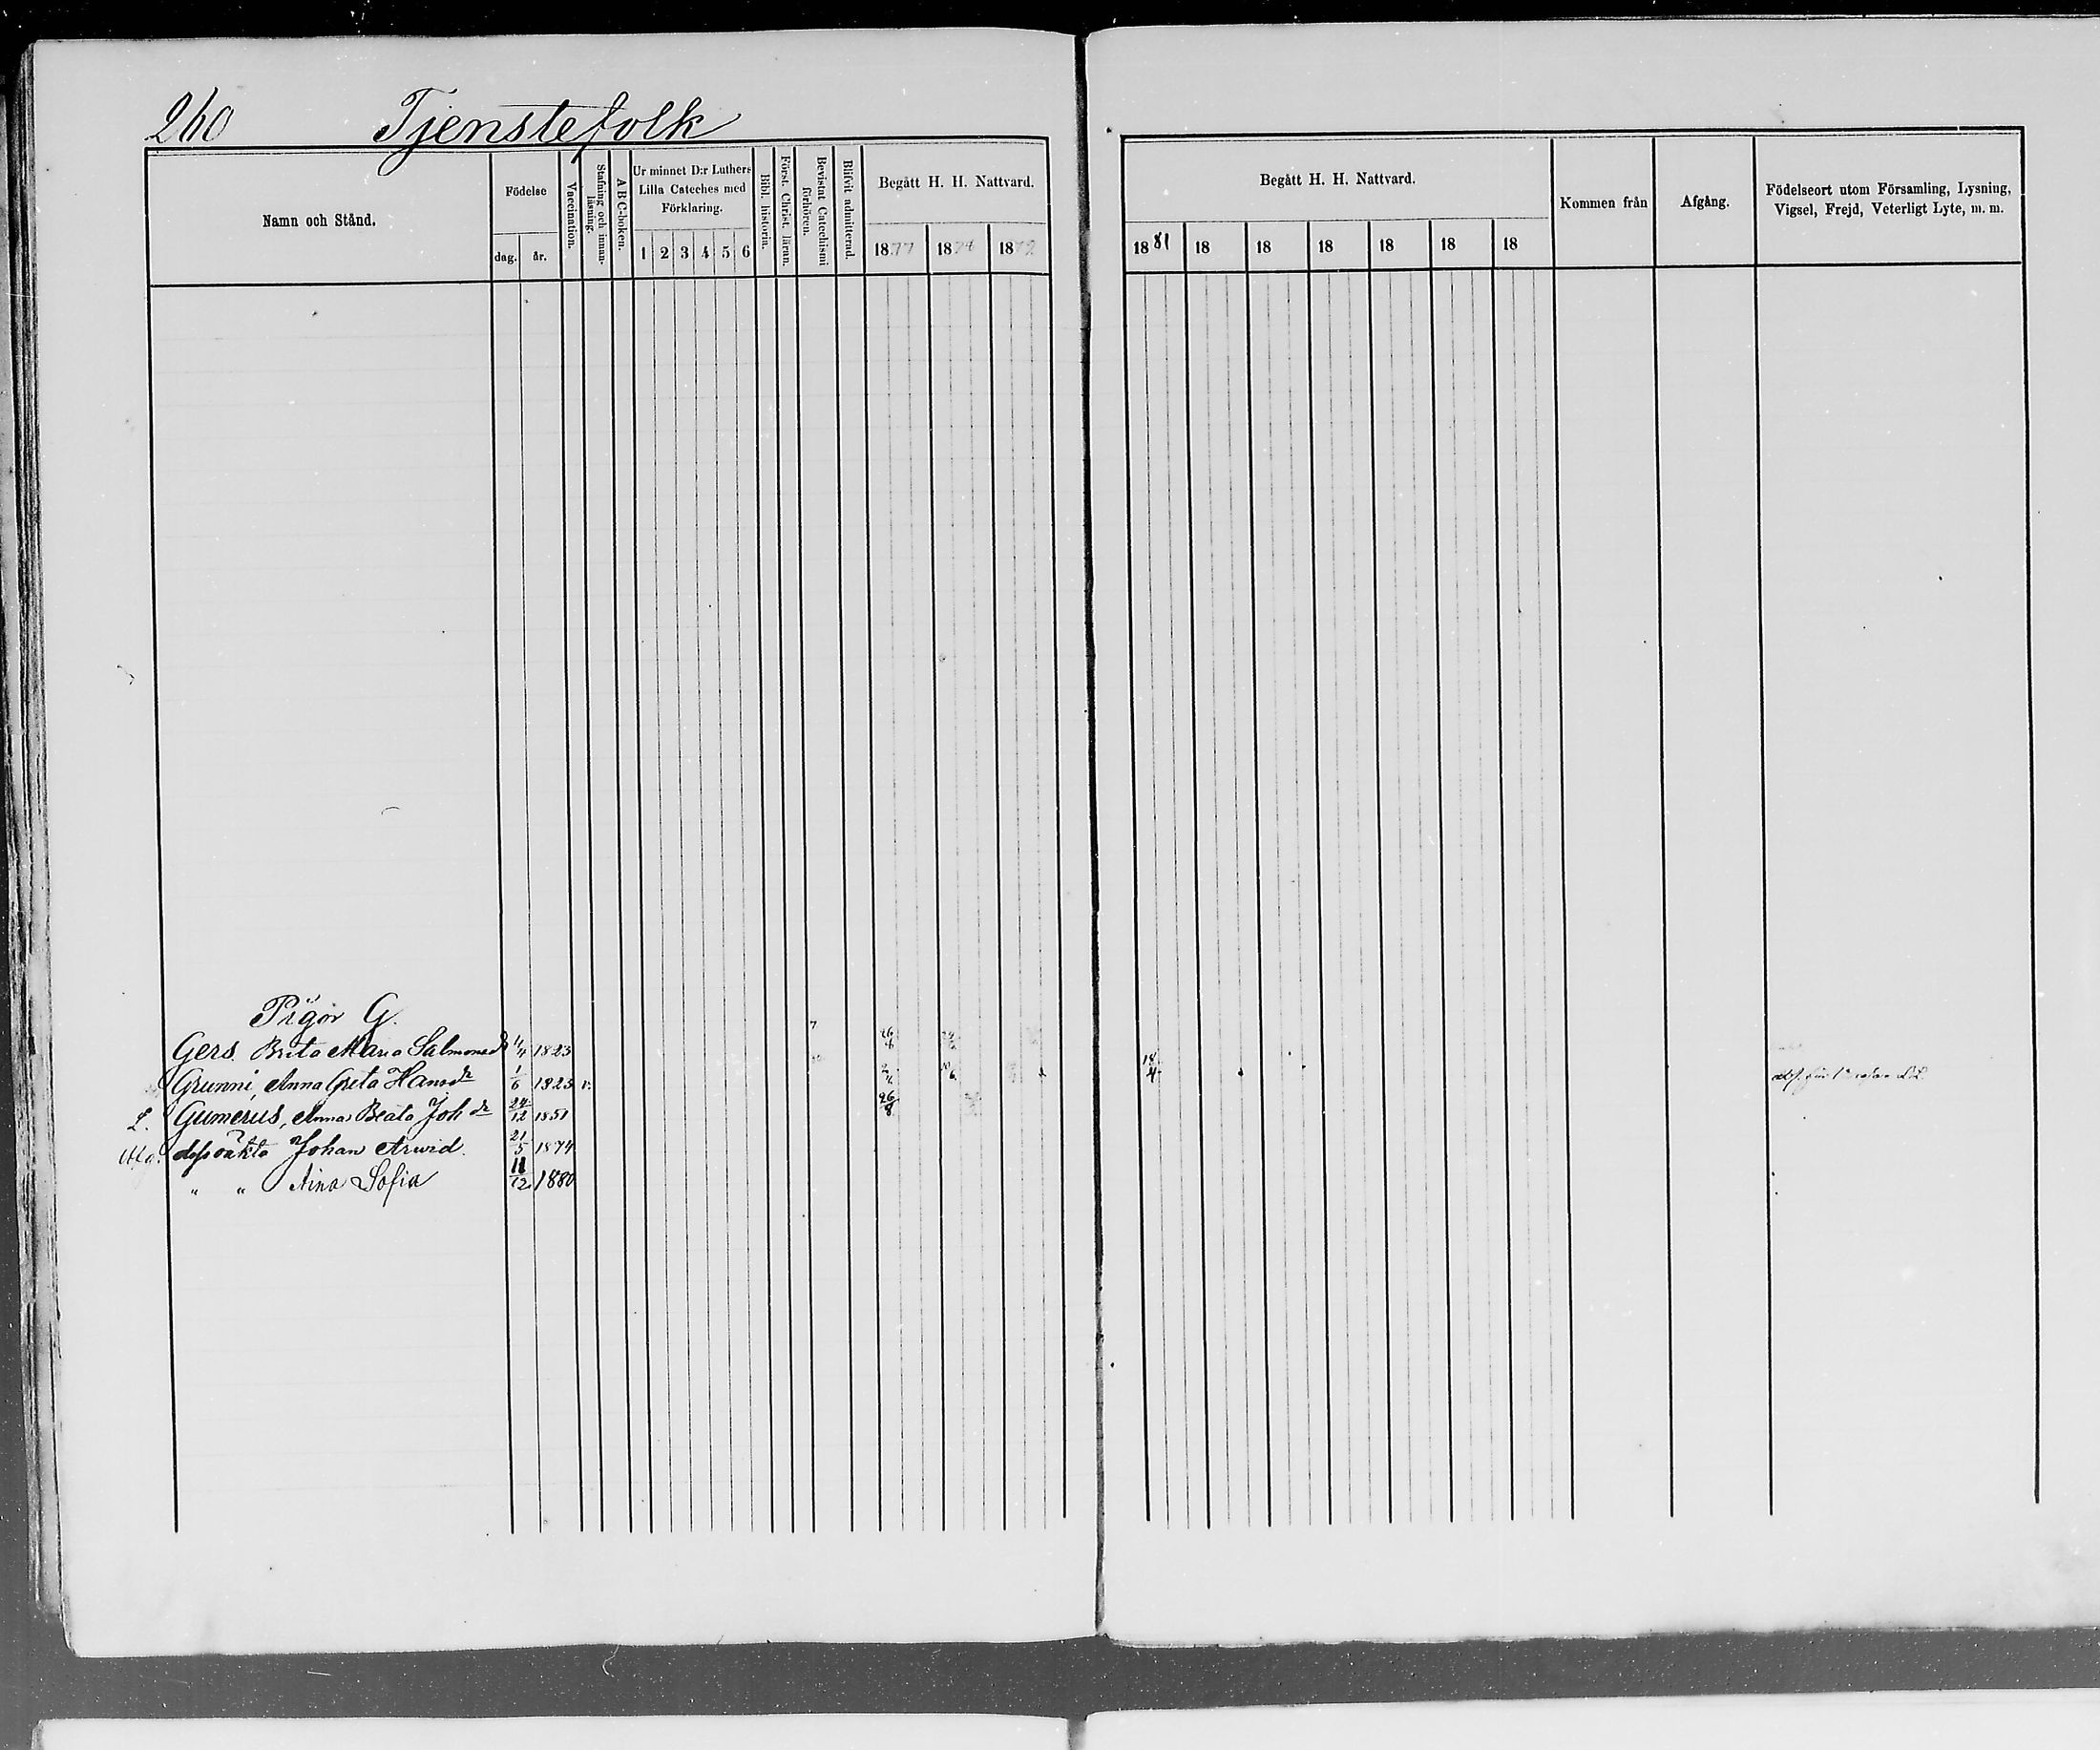 260 Tjenstefolk
Namn och Stånd.
Födelse
dag. år.
Vaccination.
Stafning och innan-läsning.
A B C-boken.
Ur minnet D:r Luthers
Lilla Cateches med
Förklaring.
1 2 3 4 5 6
Bibl. historia.
Först. Christ. läran.
Bevistat Catechismi förhören.
Blifvit admitterad.
Begått H. H. Nattvard.
1877 18 18
Begått H. H. Nattvard.
1881 18 18 18 18 18 18
Kommen från
Afgång.
Födelseort utom Församling, Lysning,
Vigsel, Frejd, Veterligt Lyte, m. m.
Pigor G.
Gers. Brita Maria Salmonsd 4/4 1823
Grunni, Anna Greta Hansdr 1/6 1823 v. 18/4
L. Gumerus, Anna Beata Johdr 24/12 1851 26/8
dess oäkta Johan Arwid. 21/5 1874
" " Aina Sofia 11/12 1880